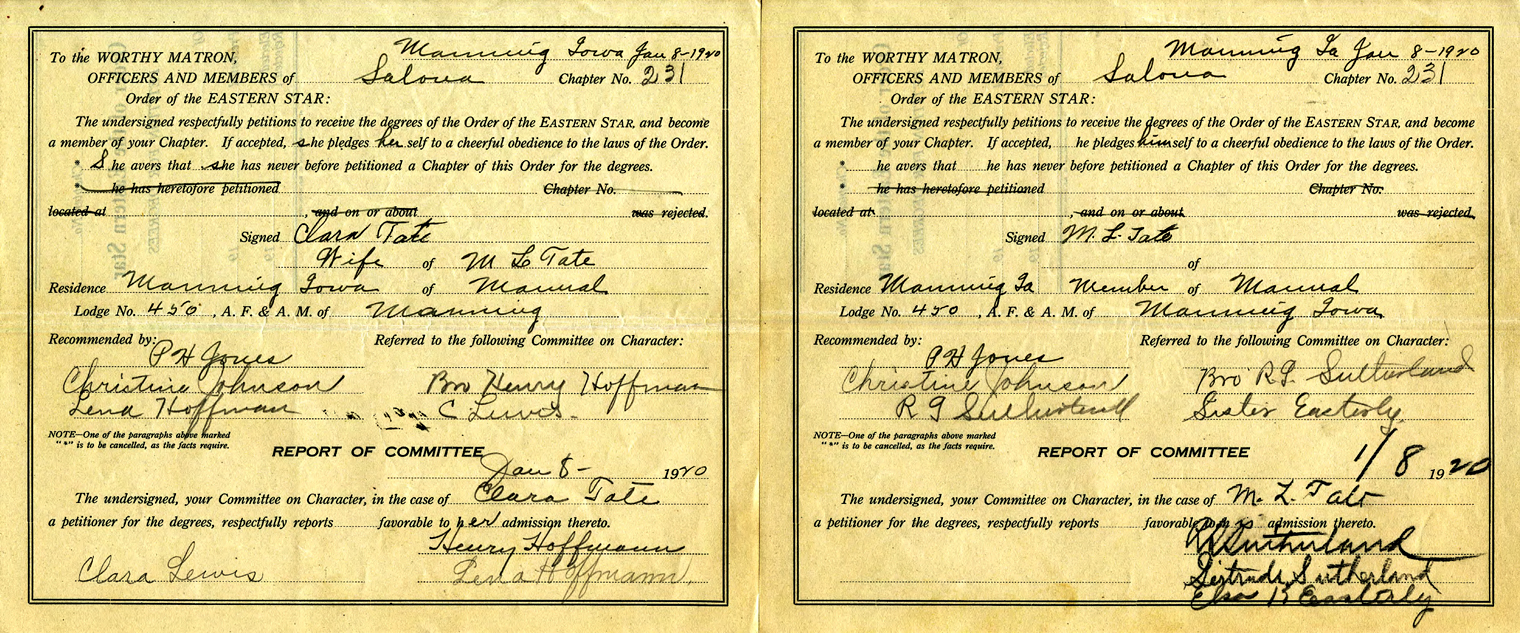 Manning Iowa Jan 8-1920
To the WORTHY MATRON,
OFFICERS AND MEMBERS of Salona Chapter No. 231
Order of the EASTERN STAR:
The undersigned respectfully petitions to receive the degrees of the Order of the EASTERN STAR, and become
a member of your Chapter. If accepted, she pledges her self to a cheerful obedience to the laws of the Order.
* She avers that she has never before petitioned a Chapter of this Order for the degrees.
* he has heretofore petitioned Chapter No.
located at , and on or about was rejected.
Signed Clara Tate
Wife of M L Tate
Residence Manning Iowa of Manual
Lodge No. 450, A. F. & A. M. of Manning
Recommended by: Referred to the following Committee on Character:
P H Jones
Christine Johnson Bro Henry Hoffman
Lena Hoffman C Lewis.
NOTE—One of the paragraphs above marked
"*" is to be cancelled, as the facts require.
REPORT OF COMMITTEE
Jan 8- 1920
The undersigned, your Committee on Character, in the case of Clara Tate
a petitioner for the degrees, respectfully reports favorable to her admission thereto.
Henry Hoffmann
Clara Lewis Lena Hoffmann.
Manning Ia Jan 8-1920
To the WORTHY MATRON,
OFFICERS AND MEMBERS of Salona Chapter No. 231
Order of the EASTERN STAR:
The undersigned respectfully petitions to receive the degrees of the Order of the EASTERN STAR, and become
a member of your Chapter. If accepted, he pledges himself to a cheerful obedience to the laws of the Order.
* he avers that he has never before petitioned a Chapter of this Order for the degrees.
* he has heretofore petitioned Chapter No.
located at , and on or about was rejected.
Signed M. L. Tate
of
Residence Manning Ia Member of Manual
Lodge No. 450, A. F. & A. M. of Manning Iowa
Recommended by: Referred to the following Committee on Character:
P H Jones
Christine Johnson Bro R.G. Sutherland
R G Sutherland Sister Easterly
NOTE—One of the paragraphs above marked
"*" is to be cancelled, as the facts require.
REPORT OF COMMITTEE
1/8 1920
The undersigned, your Committee on Character, in the case of M. L. Tate
a petitioner for the degrees, respectfully reports favorable to his admission thereto.
Sutherland
Gertrude Sutherland
Easterly